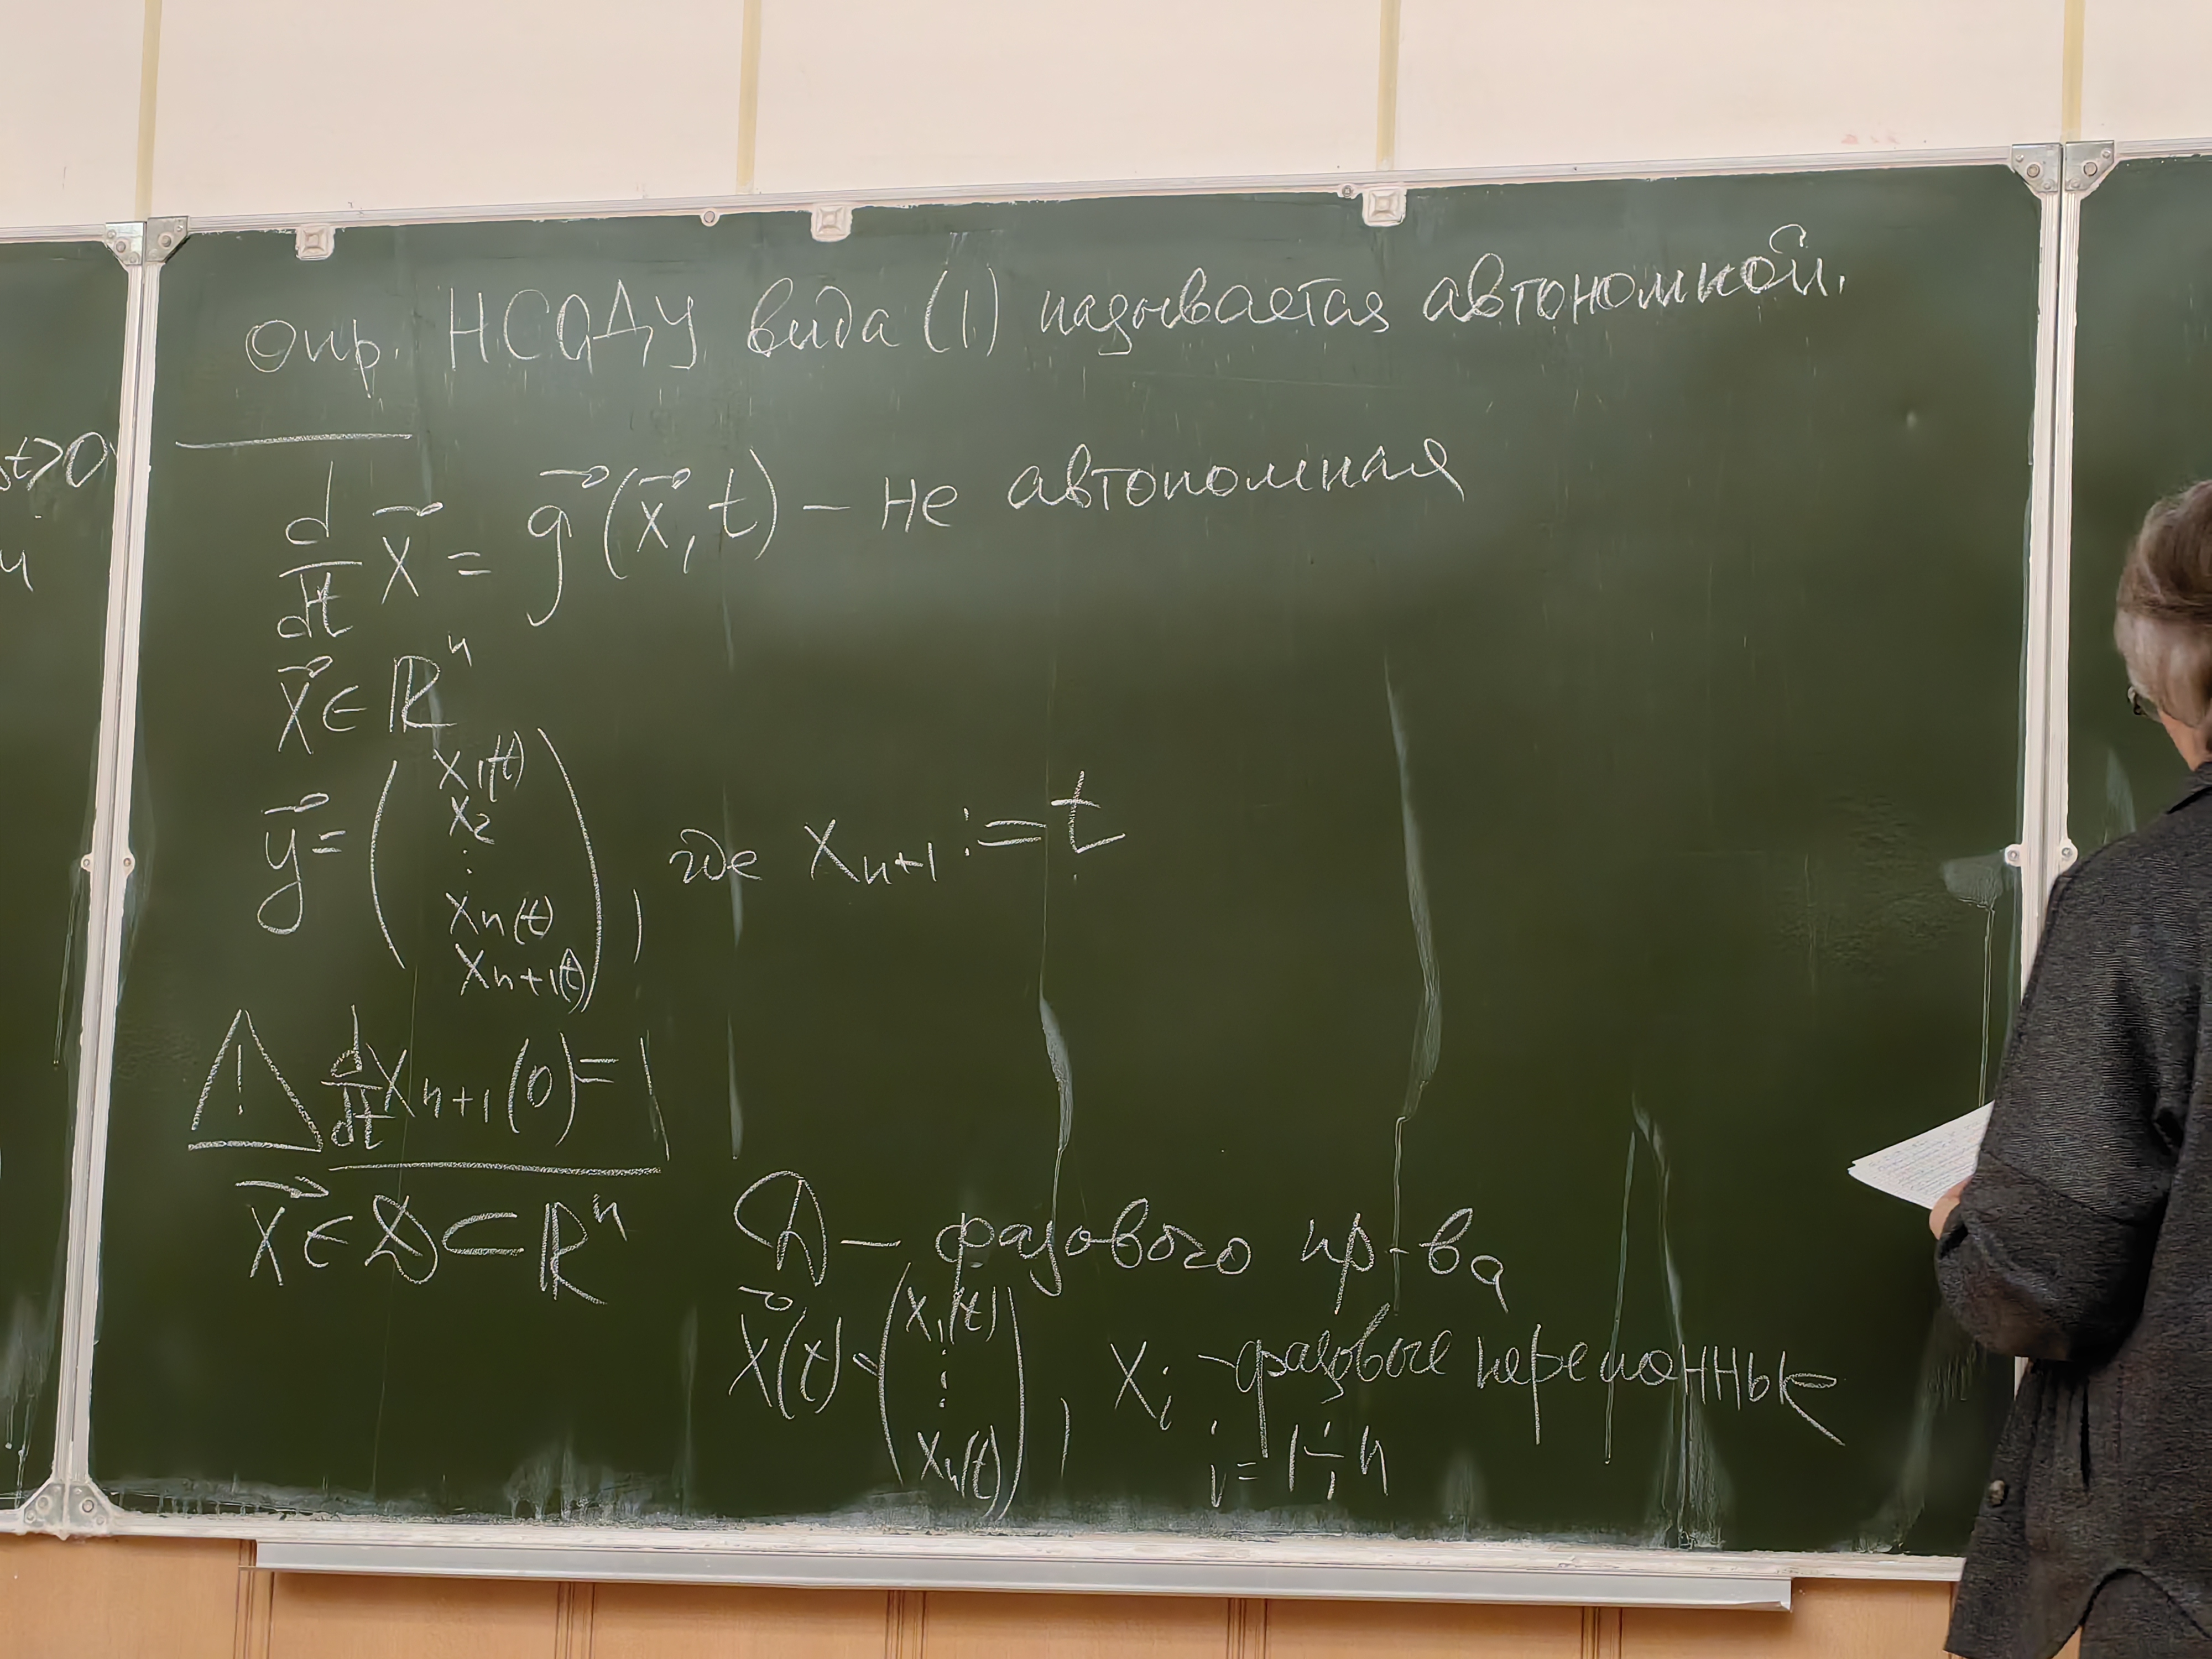 t>0
и
Опр. НСОДУ вида (1) называется автономкой.
d/dt x⃗ = g⃗(x⃗, t) – не автономная
x⃗ ∈ ℝⁿ
y⃗ = (x₁(t) x₂ ⋮ xₙ(t) xₙ₊₁(t)), где xₙ₊₁ := t
! d/dt xₙ₊₁(0) = 1
x⃗ ∈ D ⊂ ℝⁿ D – фазового пр-ва
x⃗(t) - (x₁(t) ⋮ xₙ(t)), xᵢ – фазовые переменные
i = 1÷n